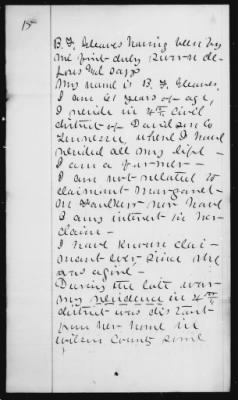 15
B. F. Gleaves having been by
me first duly sworn de-
poses and says
My name is B. F. Gleaves,
I am 61 years of age,
I reside in 4th Civil
district of Davidson Co
Tennessee where I have
resided all my life -
I am a farmer -
I am not related to
claimant Margaret
M Faulkner nor have
I any interest in her
claim -
I have known clai-
mant ever since she
was a girl -
During the late war
my residence in 4th
district was distant
from her home in
Wilson County some